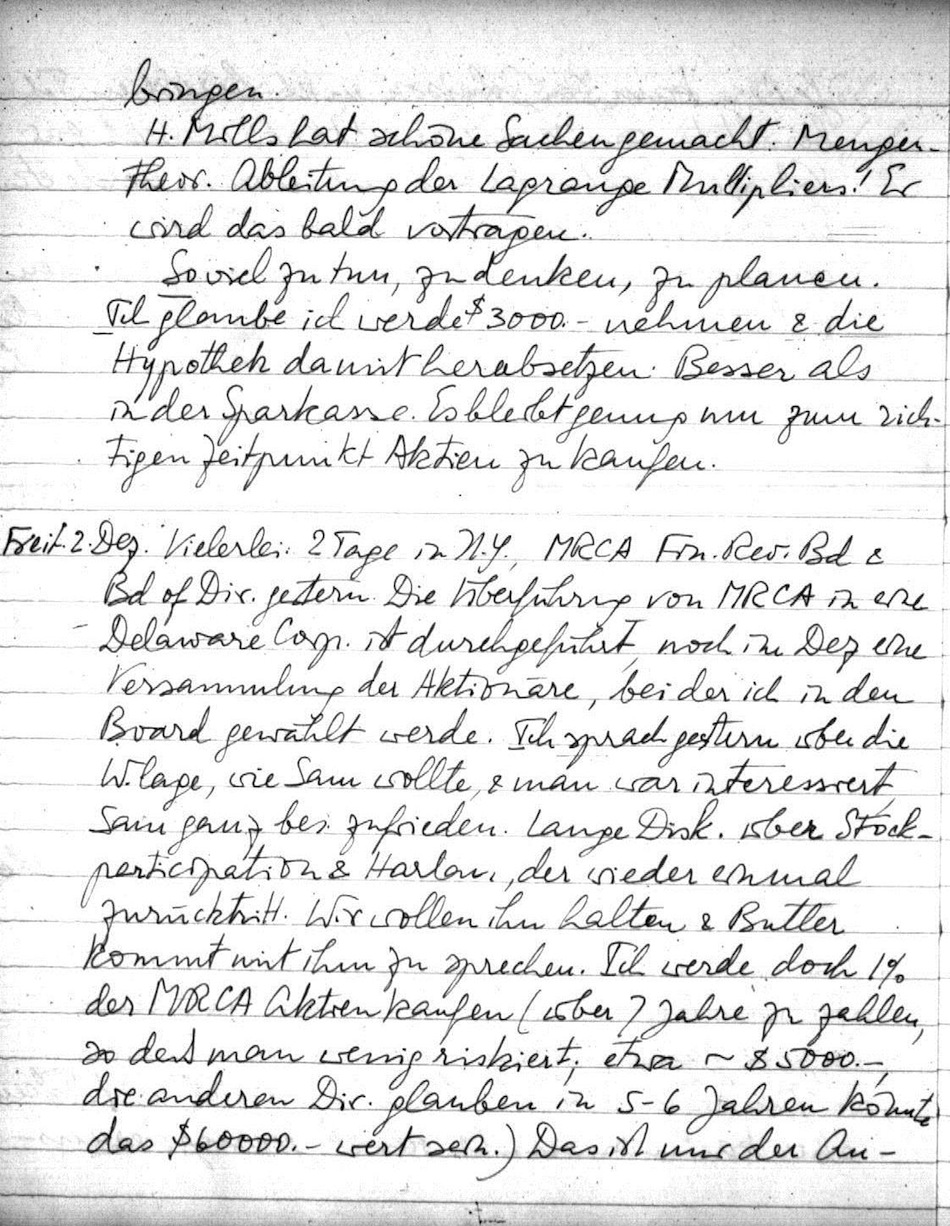 bringen.
H. Mills hat schöne Sachen gemacht. Mengen-
theor. Ableitung der Lagrange Multipliers! Er
wird das bald vortragen.
Soviel zu tun, zu denken, zu planen.
Ich glaube ich werde $3000.- nehmen & die
Hypothek damit herabsetzen. Besser als
in der Sparkasse. Es bleibt genug um zum rich-
tigen Zeitpunkt Aktien zu kaufen.
Freit. 2. Dez. Vielerlei. 2 Tage in N.Y., MRCA Fin. Rev. Bd &
Bd of Dir. gestern. Die Überführung von MRCA in eine
Delaware Corp. ist durchgeführt, noch im Dez eine
Versammlung der Aktionäre, bei der ich in den
Board gewählt werde. Ich sprach gestern über die
W.lage, wie Sam wollte, & man war interessiert,
Sam ganz bes. zufrieden. Lange Disk. über Stock-
participation & Harlan, der wieder einmal
zurücktritt. Wir wollen ihn halten & Butler
kommt mit ihm zu sprechen. Ich werde doch 1%
der MRCA Aktien kaufen (über 7 Jahre zu zahlen,
so dass man wenig riskiert; etwa ~ $5000.-,
die anderen Dir. glauben in 5-6 Jahren könnte
das $60000.- wert sein.) Das ist nur der An-